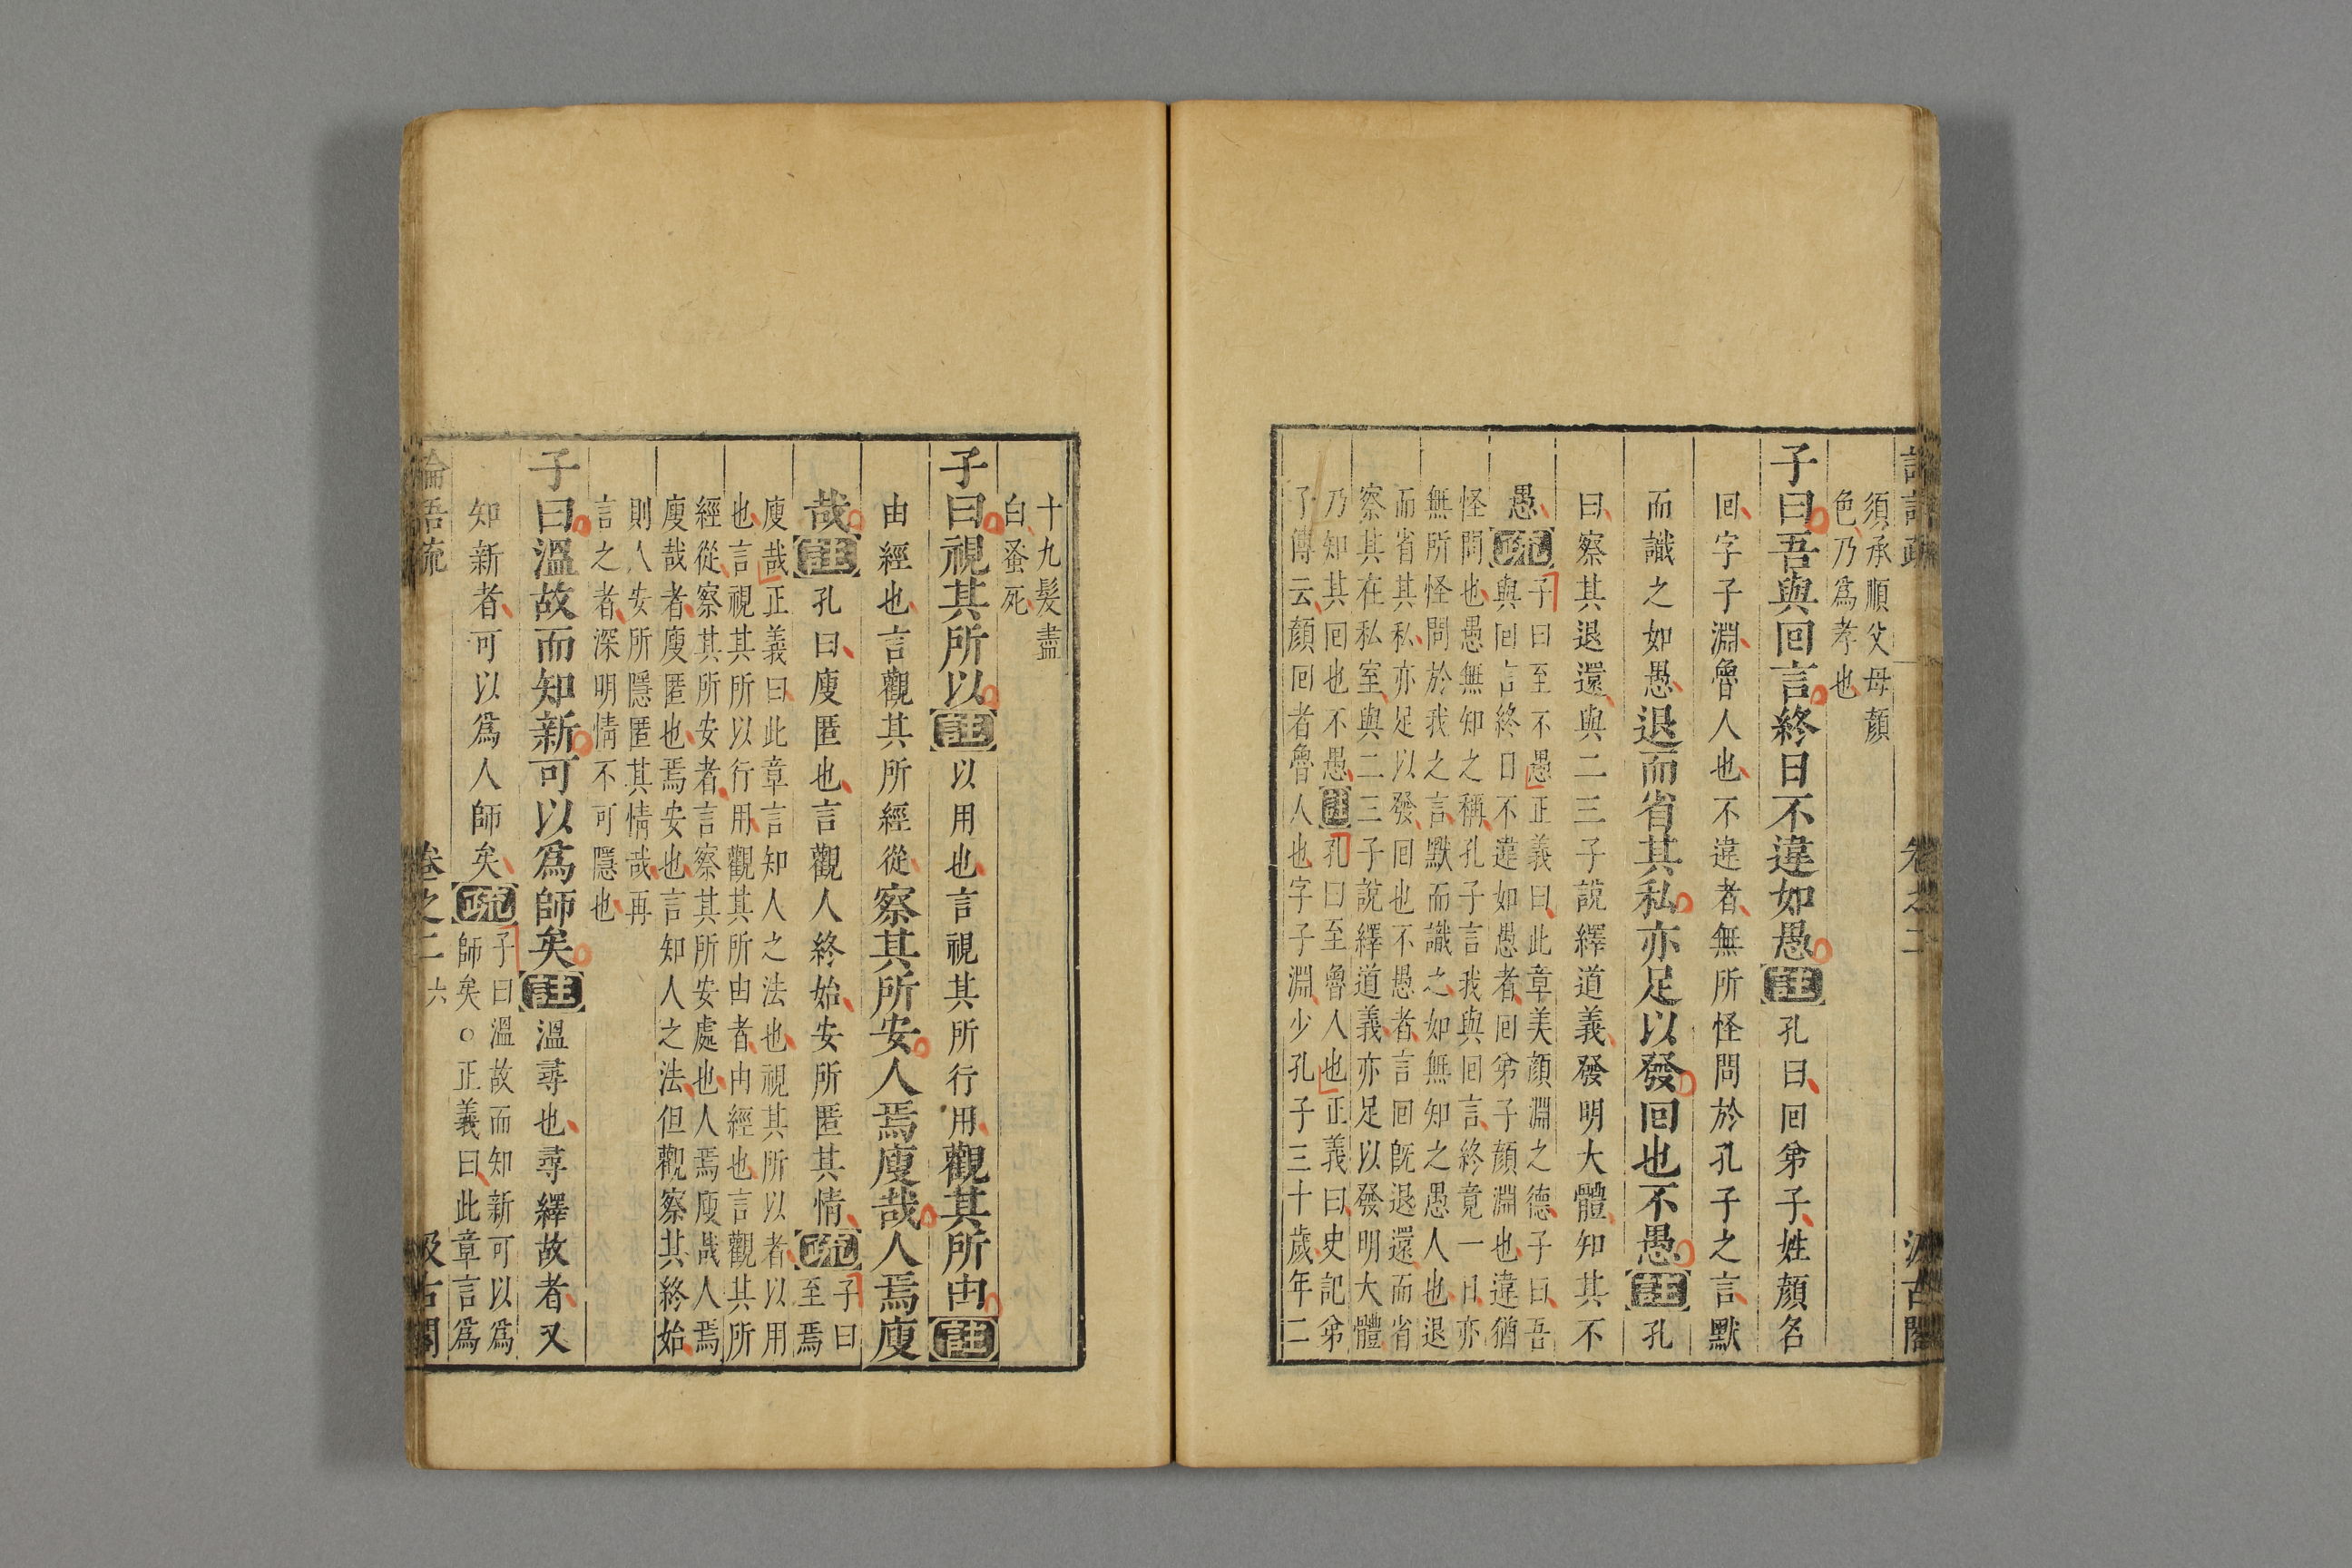 須承順父母顏
色乃爲孝也
子曰吾與回言終日不違如愚註孔曰回弟子姓顏名
回字子淵魯人也不違者無所怪問於孔子之言默
而識之如愚退而省其私亦足以發回也不愚註孔
曰察其退還與二三子說繹道義發明大體知其不
愚疏
子曰至不愚正義曰此章美顏淵之德子曰吾
與回言終日不違如愚者回弟子顏淵也違猶
怪問也愚無知之稱孔子言我與回言終竟一日亦
無所怪問於我之言默而識之如無知之愚人也退
而省其私亦足以發回也不愚者言回旣退還而省
察其在私室與二三子說繹道義亦足以發明大體
乃知其回也不愚註孔曰至魯人也正義曰史記弟
子傳云顏回者魯人也字子淵少孔子三十歲年二
卷之二
汲古閣
十九髮盡
白蚤死
子曰視其所以註以用也言視其所行用觀其所由註
由經也言觀其所經從察其所安人焉廋哉人焉廋
哉註孔曰廋匿也言觀人終始安所匿其情疏
子曰
至焉
廋哉正義曰此章言知人之法也視其所以者以用
也言視其所以行用觀其所由者由經也言觀其所
經從察其所安者言察其所安處也人焉廋哉人焉
廋哉者廋匿也焉安也言知人之法但觀察其終始
則人安所隱匿其情哉再
言之者深明情不可隱也
子曰溫故而知新可以爲師矣註溫尋也尋繹故者又
知新者可以爲人師矣疏
子曰溫故而知新可以爲
師矣○正義曰此章言爲
論語疏
卷之二
六
汲古閣